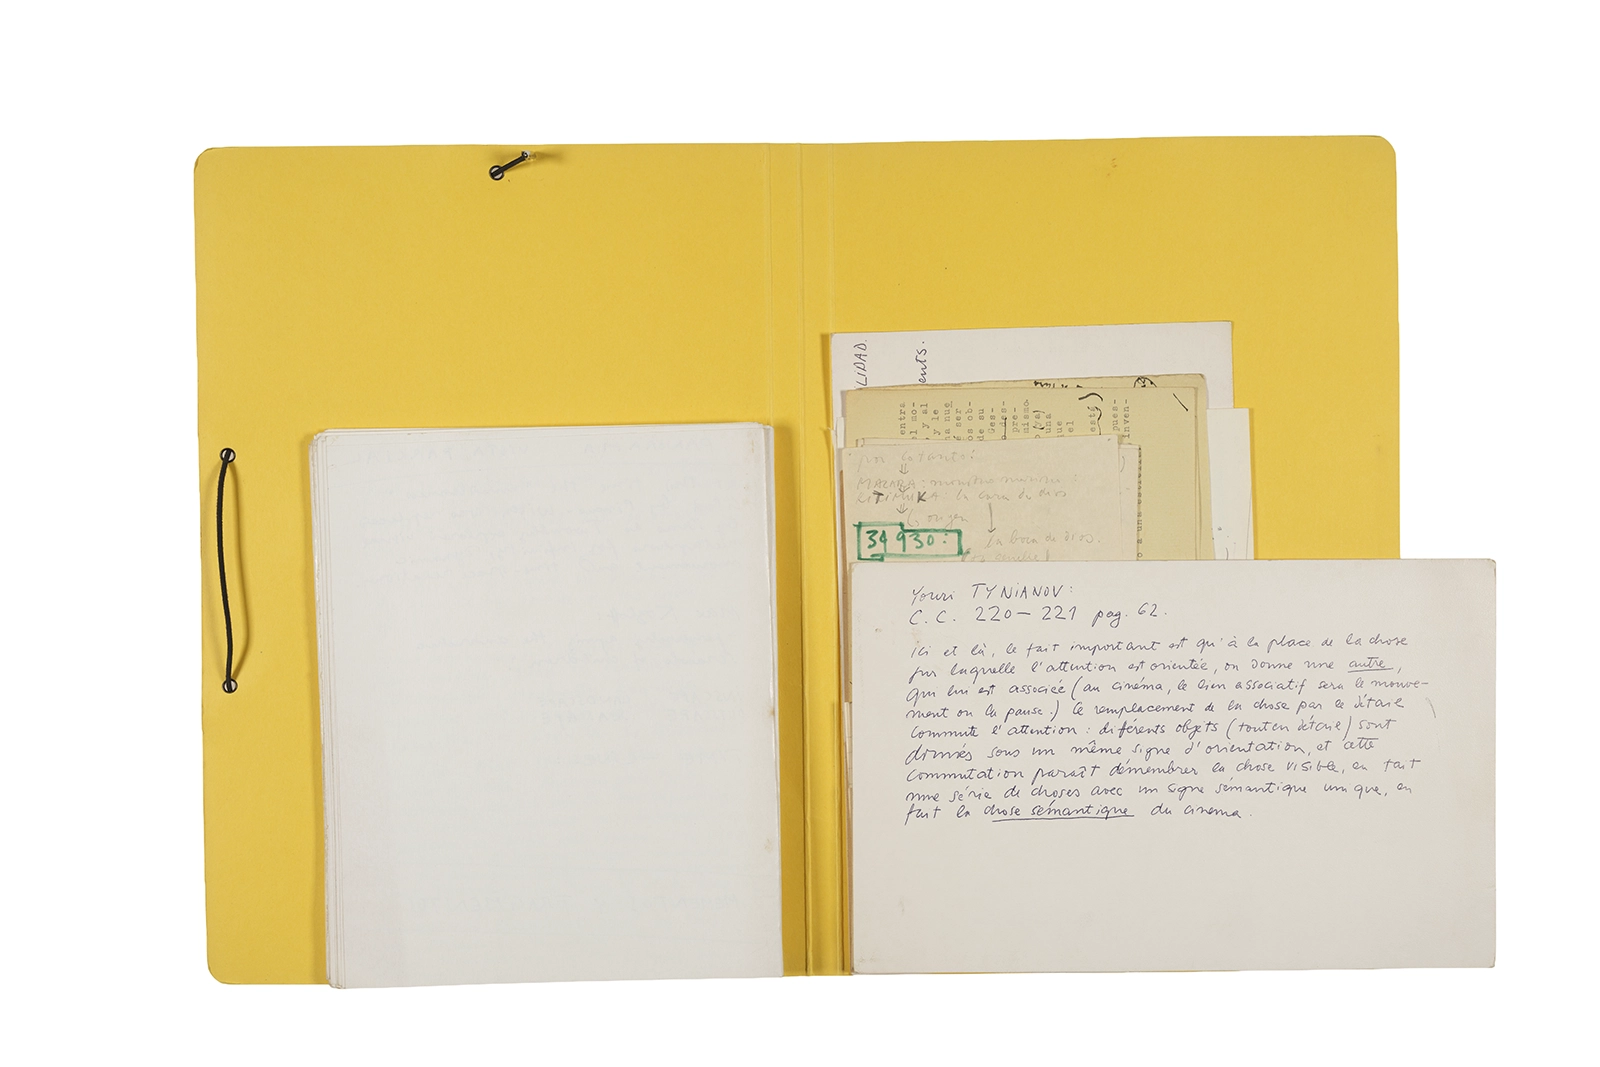 LIDAD.
ents.
entra
el mo-
y al
y le
na nue
é ser
os ob-
de su
Ges-
o des-
pre-
mismo
o (ya)
una
que
el
está)
pues-
inven-
o a una
por lo tanto:
MAZARA: monstruo marino:
RITIMUKA: la cara de dios
origen
la boca de dios.
34 930:
Youri TYNIANOV:
C.C. 220-221 pag. 62.
ici et là, le fait important est qu'à la place de la chose
sur laquelle l'attention est orientée, on donne une autre,
qui lui est associée (au cinéma, le lien associatif sera le mouve-
ment ou la pause.) Ce remplacement de la chose par le détail
commute l'attention: diférents objets (tout en détail) sont
donnés sous un même signe d'orientation, et cette
commutation paraît démembrer la chose visible, en fait
une série de choses avec un signe sémantique unique, en
fait la chose sémantique du cinema.